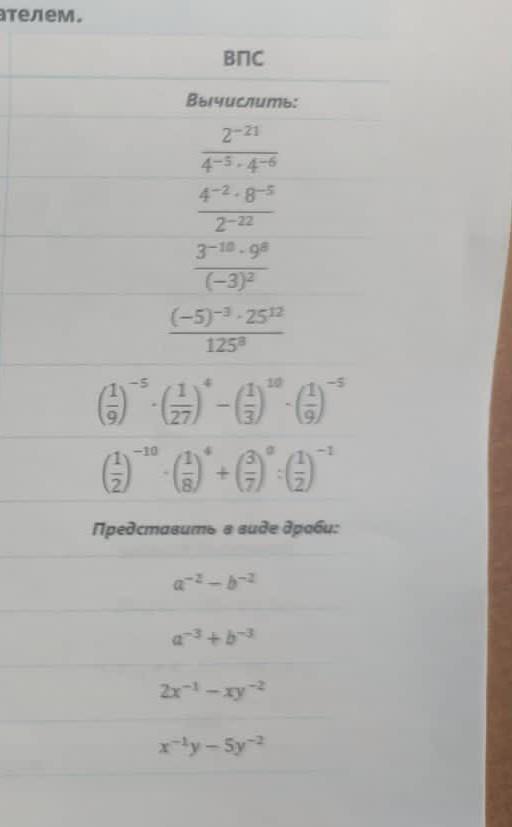 ателем.
ВПС
Вычислить:
2⁻²¹ / (4⁻⁵ · 4⁻⁶)
(4⁻² · 8⁻⁵) / 2⁻²²
(3⁻¹⁰ · 9⁸) / (−3)²
((−5)⁻³ · 25¹²) / 125⁸
(1/9)⁻⁵ · (1/27)⁴ − (1/3)¹⁰ · (1/9)⁻⁵
(1/2)⁻¹⁰ · (1/8)⁴ + (3/7)⁰ : (1/2)⁻¹
Представить в виде дроби:
a⁻² − b⁻²
a⁻³ + b⁻³
2x⁻¹ − xy⁻²
x⁻¹y − 5y⁻²